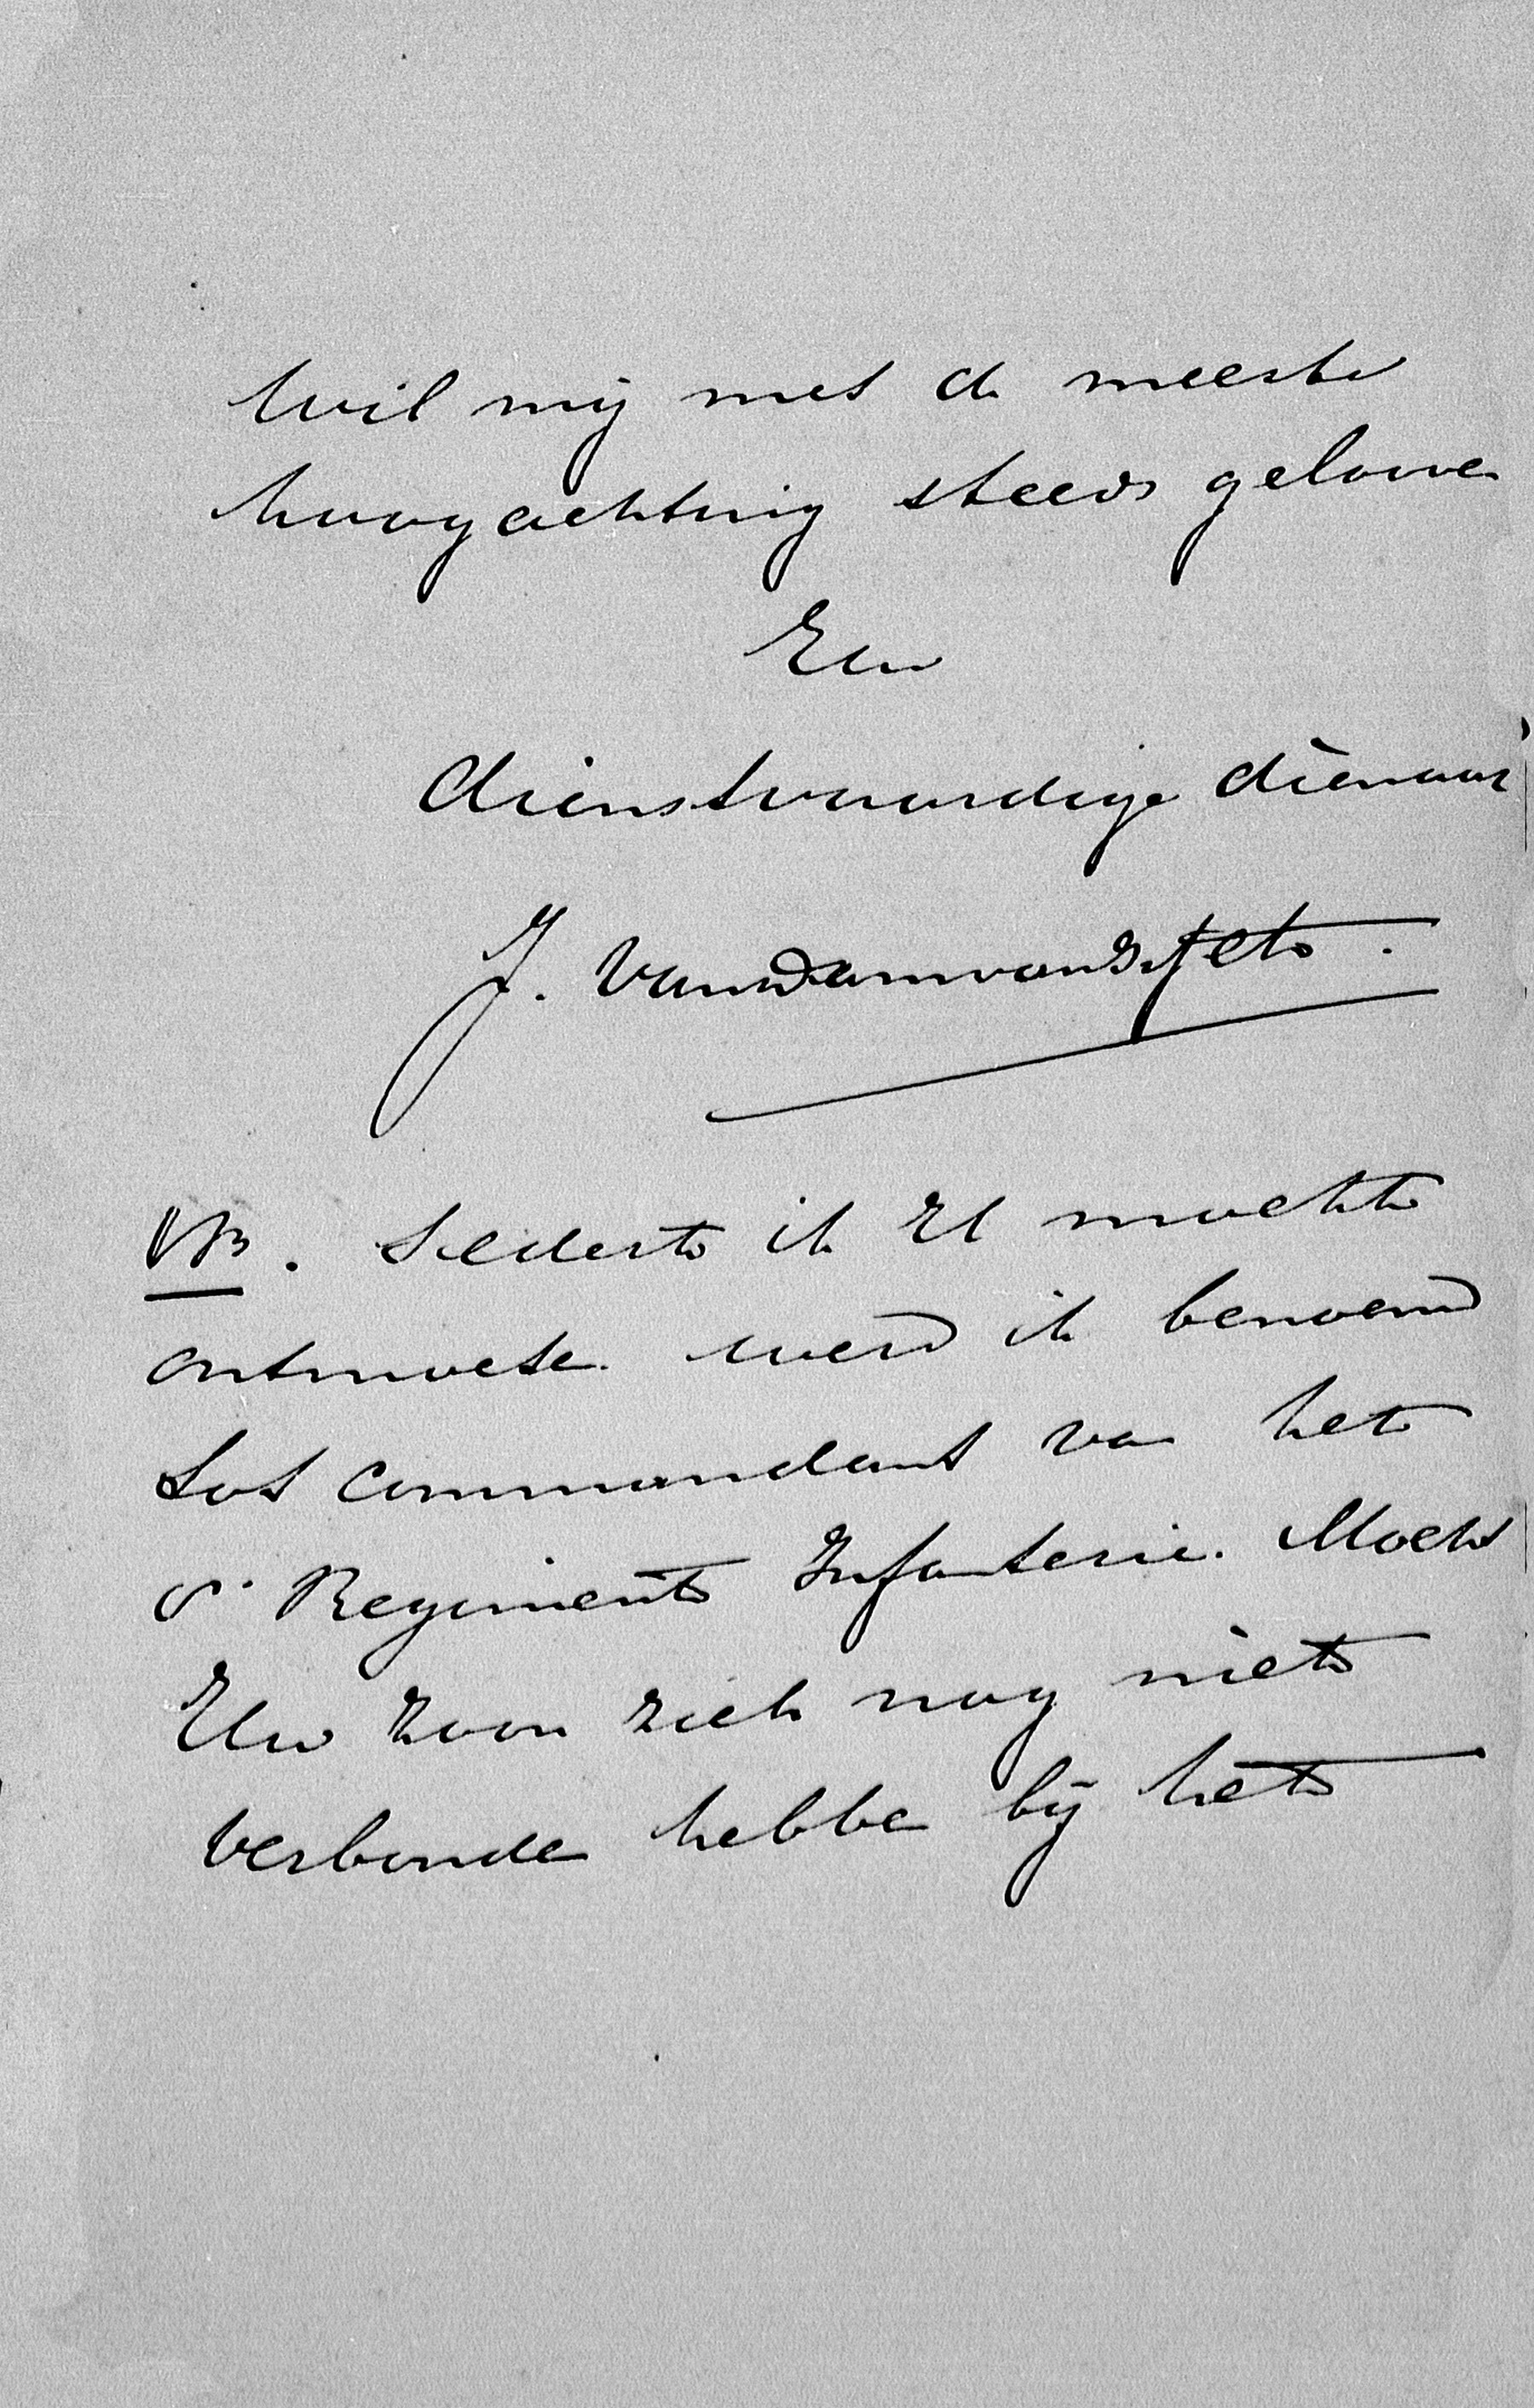 Wil mij met de meeste
hoogachting steeds gelooven
Uw
dienstvaardige dienaar
J. van Dam van Isselt.
NB. Sedert ik U mocht
ontmoeten werd ik benoemd
tot commandant van het
8e Regiment Infanterie. Mocht
Uw zoon zich nog niet
verbonden hebben bij het